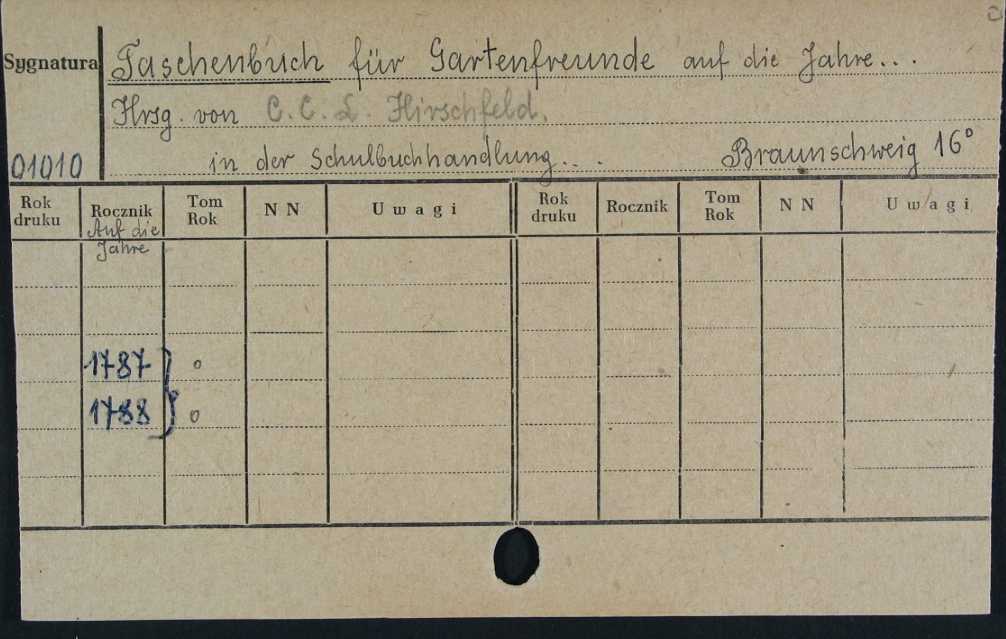 Sygnatura
Taschenbuch für Gartenfreunde auf die Jahre...
Hrsg. von C. C. L. Hirschfeld.
01010
in der Schulbuchhandlung... Braunschweig 16°
Rok druku Rocznik Tom Rok NN Uwagi Rok druku Rocznik Tom Rok NN Uwagi
Auf die
Jahre
1787 } o
1788 } o